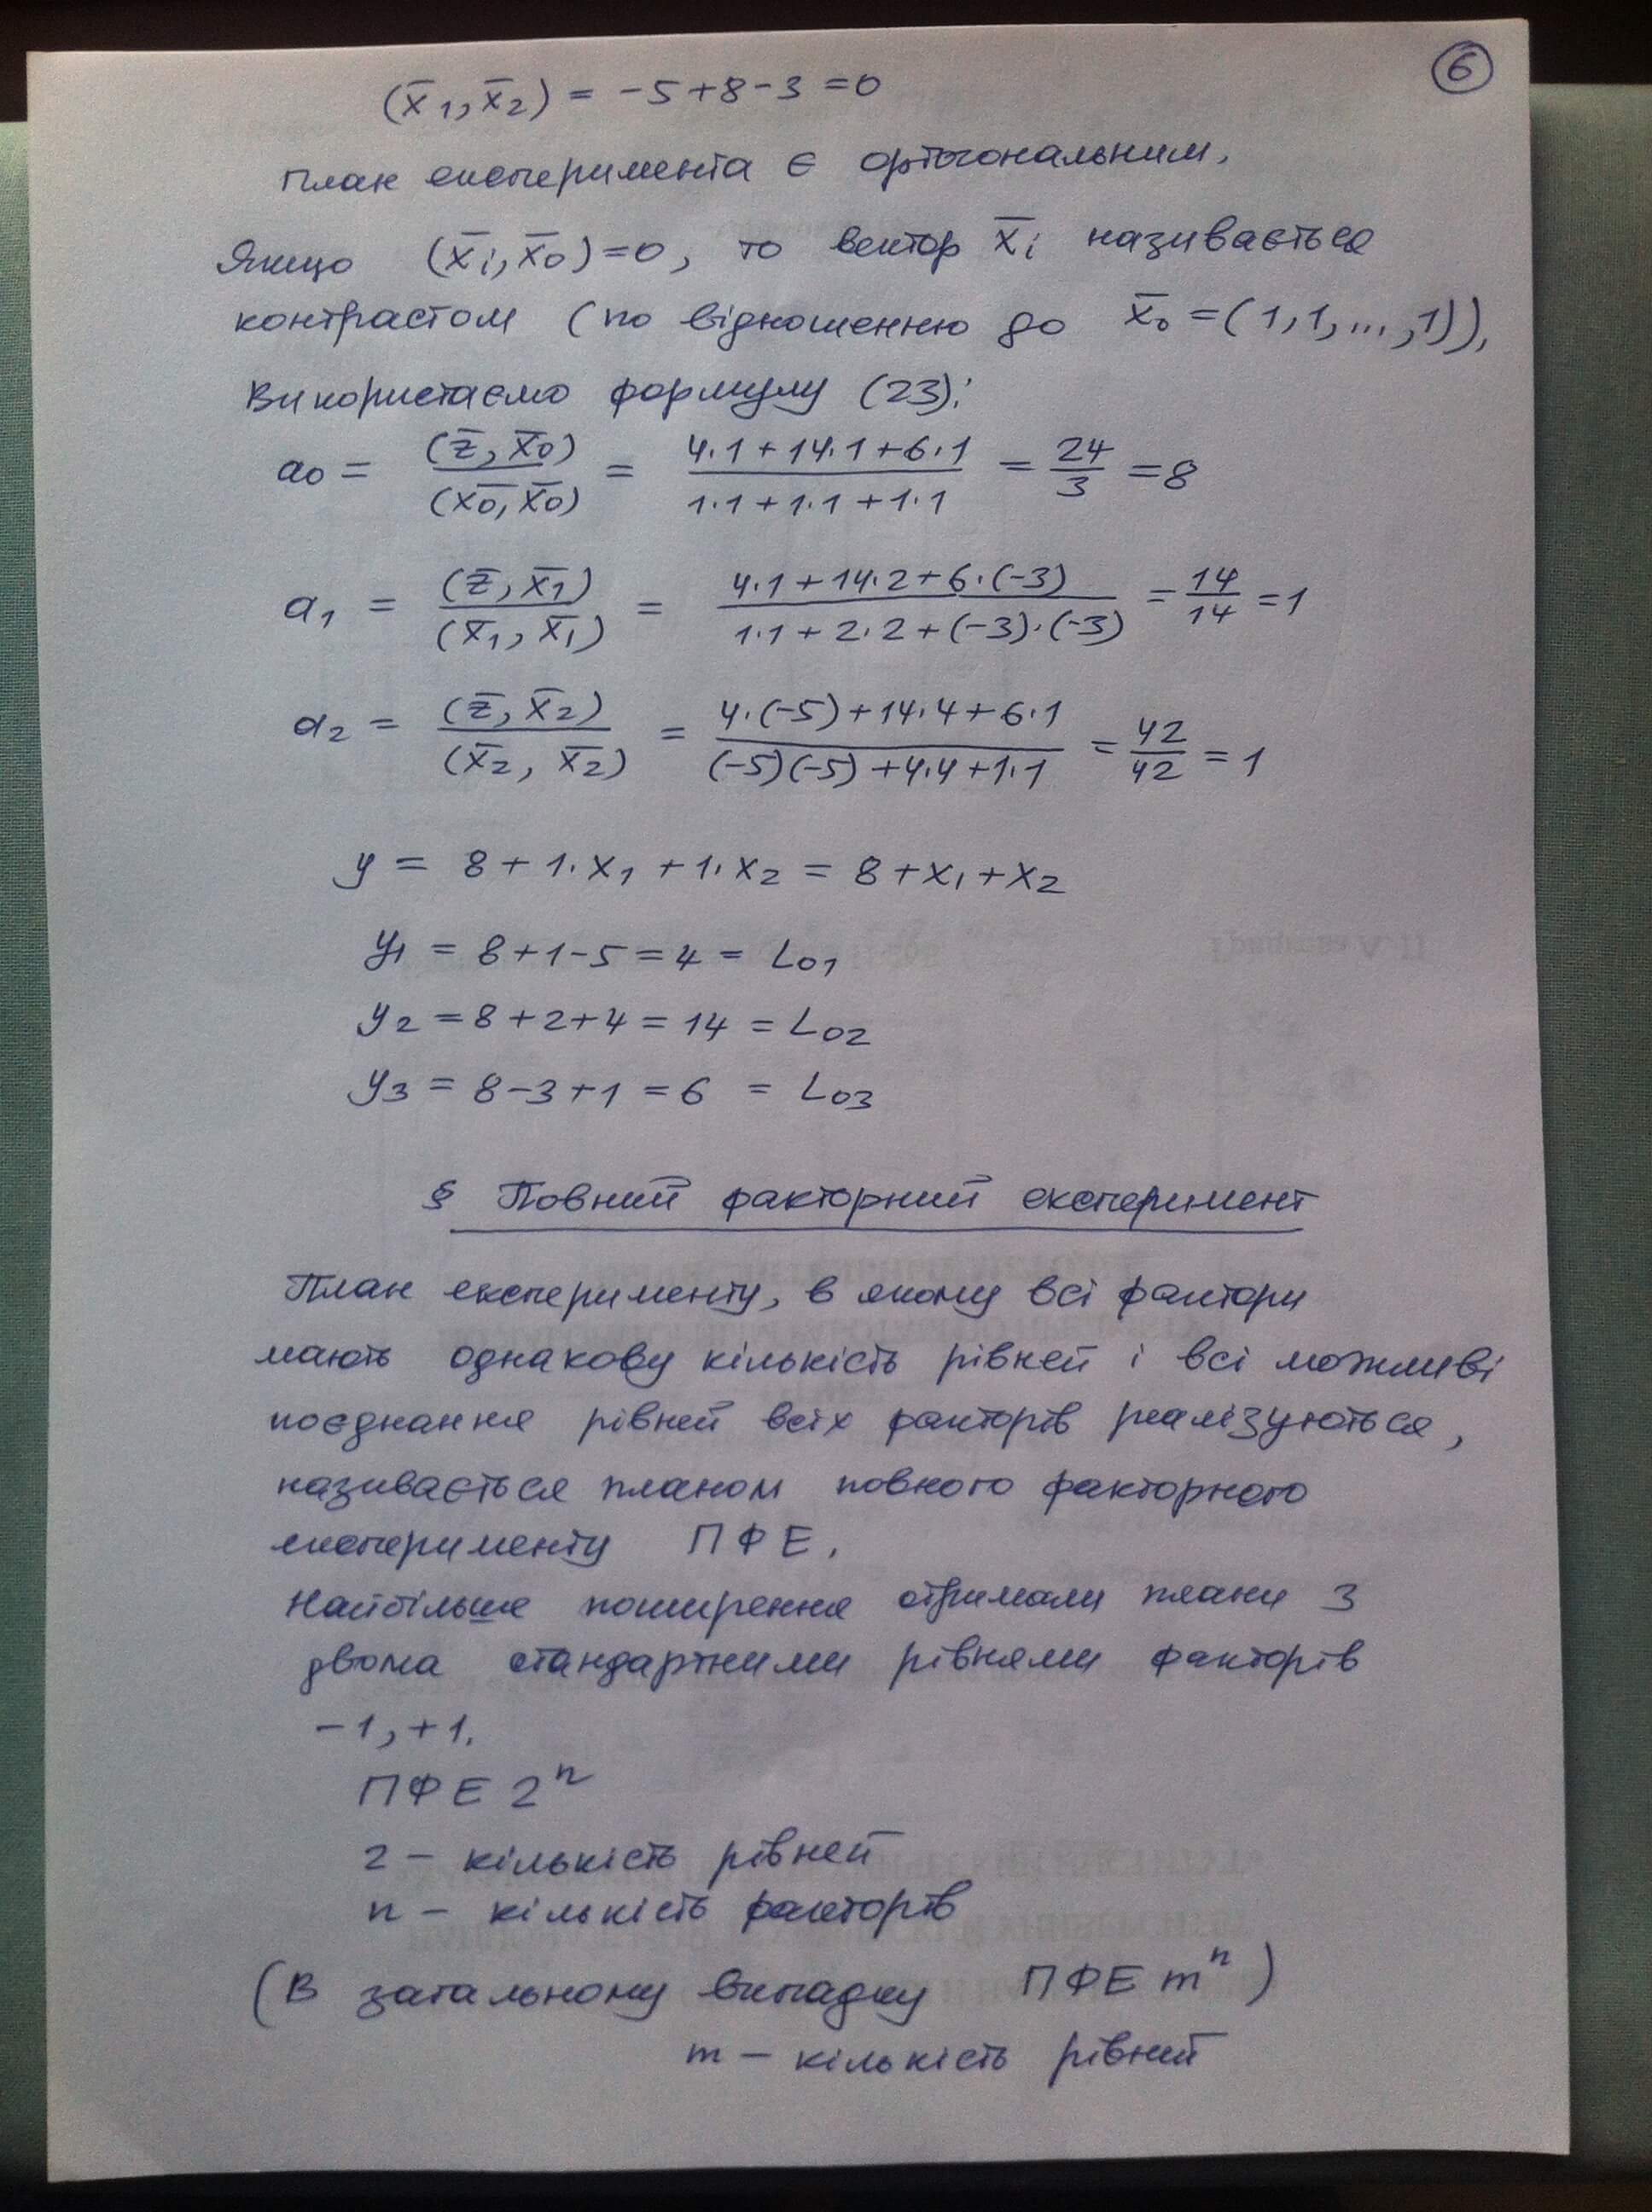 6
(x̄1, x̄2) = -5+8-3 = 0
План експеримента є ортогональним.
Якщо (x̄i, x̄0)=0, то вектор x̄i називається
контрастом (по відношенню до x̄0 = (1,1,...,1)).
Використаємо формулу (23):
a0 = (z̄, x̄0) / (x̄0, x̄0) = (4·1+14·1+6·1) / (1·1+1·1+1·1) = 24/3 = 8
a1 = (z̄, x̄1) / (x̄1, x̄1) = (4·1+14·2+6·(-3)) / (1·1+2·2+(-3)·(-3)) = 14/14 = 1
a2 = (z̄, x̄2) / (x̄2, x̄2) = (4·(-5)+14·4+6·1) / ((-5)(-5)+4·4+1·1) = 42/42 = 1
y = 8+1·x1+1·x2 = 8+x1+x2
y1 = 8+1-5=4 = L01
y2 = 8+2+4=14 = L02
y3 = 8-3+1=6 = L03
§ Повний факторний експеримент
План експерименту, в якому всі фактори
мають однакову кількість рівней і всі можливі
поєднання рівней всіх факторів реалізуються,
називається планом повного факторного
експерименту ПФЕ.
Найбільше поширення отримали плани з
двома стандартними рівнями факторів
-1, +1.
ПФЕ 2ⁿ
2 – кількість рівней
n – кількість факторів
(В загальному випадку ПФЕ mⁿ)
m – кількість рівней